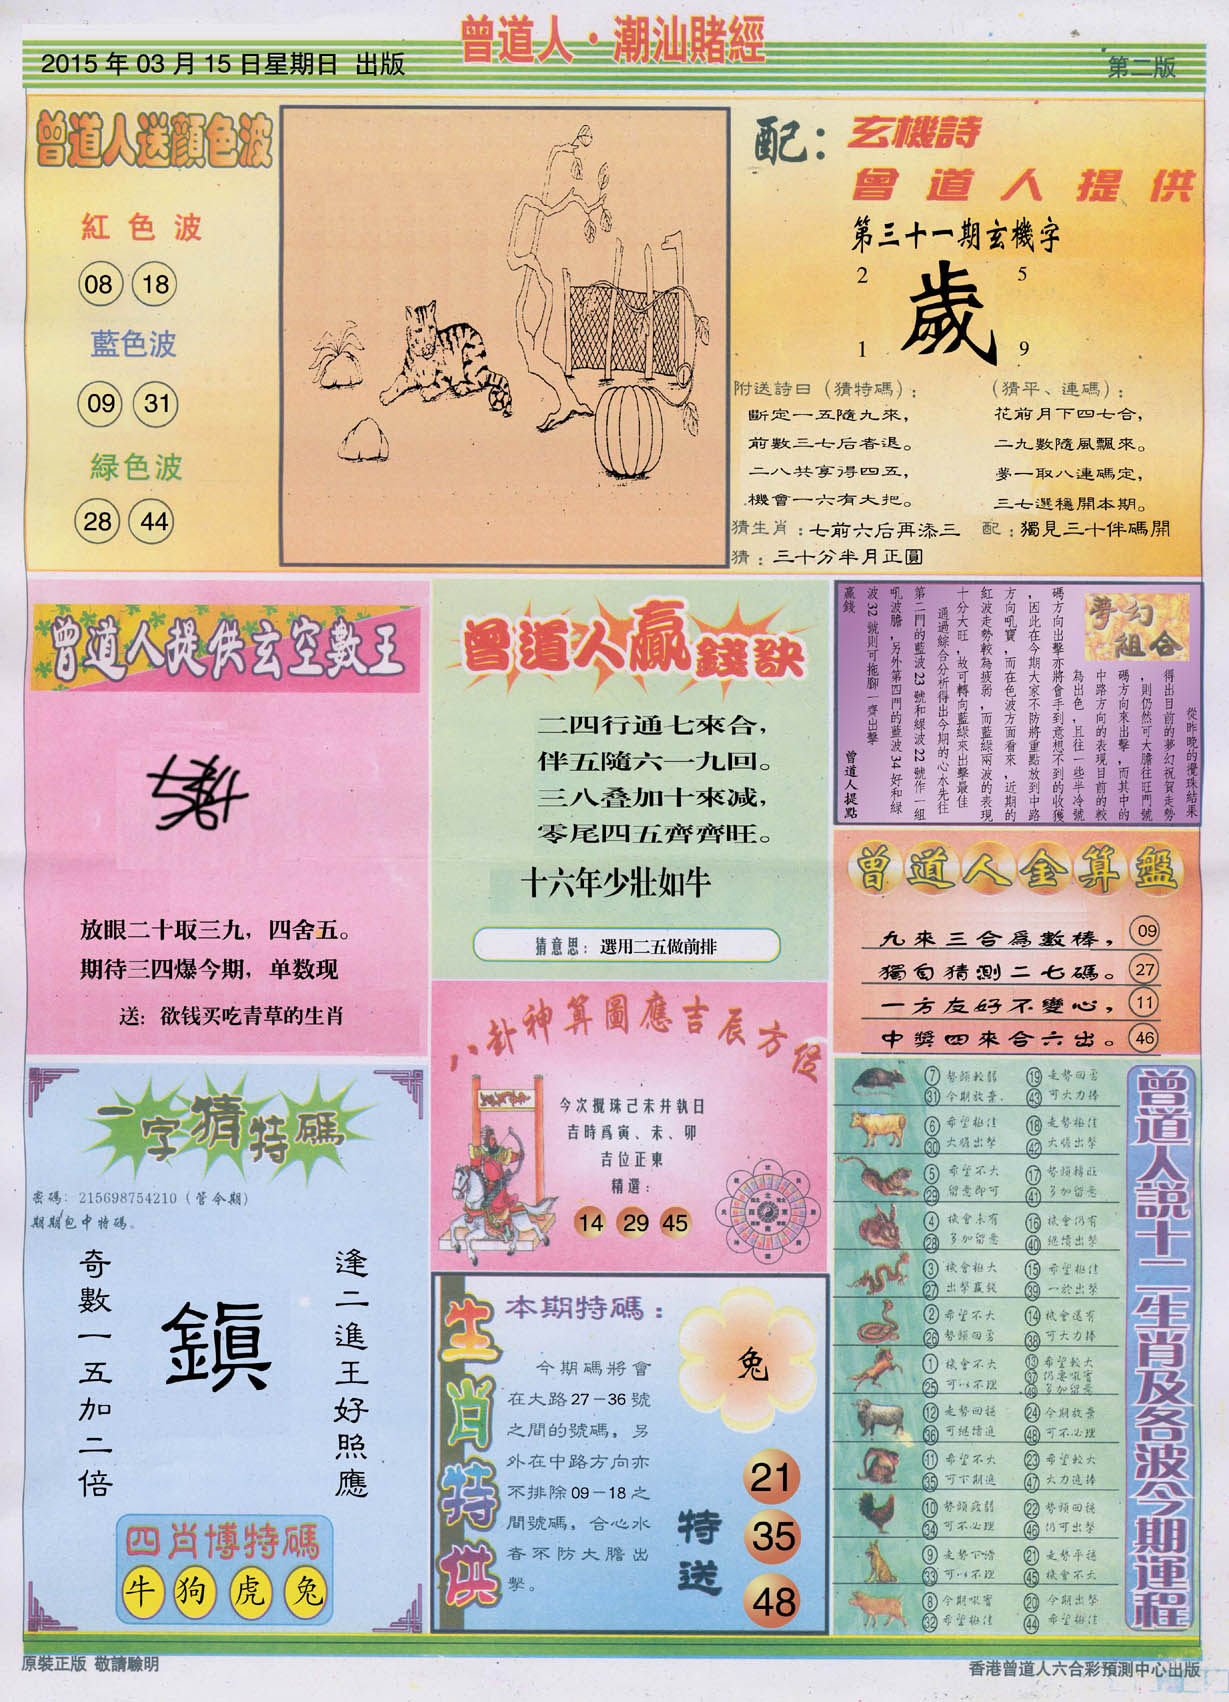 曾道人·潮汕賭經
2015 年 03 月 15 日星期日 出版
第二版
曾道人送顏色波
紅色波
08 18
藍色波
09 31
緑色波
28 44
配：玄機詩
曾道人提供
第三十一期玄機字
2 5
歲
1 9
附送詩曰（猜特碼）：
斷定一五隨九來，
前數三七后香退。
二八共享得四五，
機會一六有大把。
（猜平、連碼）：
花前月下四七合，
二九數隨風飄來。
夢一取八連碼定，
三七選穩開本期。
猜生肖：七前六后再添三
配：獨見三十伴碼開
猜：三十分半月正圓
曾道人提供玄空數王
放眼二十取三九，四舍五。
期待三四爆今期，单数现
送：欲钱买吃青草的生肖
曾道人贏錢訣
二四行通七來合，
伴五隨六一九回。
三八叠加十來減，
零尾四五齊齊旺。
十六年少壯如牛
猜意思：選用二五做前排
夢幻組合
從昨晚的攪珠結果
得出目前的夢幻祝賀走勢
，則仍然可大膽往旺門號
碼方向來出擊，而其中的
中路方向的表現目前的較
為出色，且往一些半冷號
碼方向出擊亦將會手到意想不到的收獲
，因此在今期大家不防將重點放到中路
方向吼寶，而在色波方面看來，近期的
紅波走勢較為疲弱，而藍綠兩波的表現
十分大旺，故可轉向藍綠來出擊最佳
通過綜合分析得出今期的心水先往
第二門的藍波 23 號和綠波 22 號作一組
吼波膽，另外第四門的藍波 34 好和綠
波 32 號則可拖腳一齊出擊
贏錢
曾道人提點
曾道人金算盤
九來三合爲數棒， 09
獨自猜測二七碼。 27
一方友好不變心， 11
中獎四來合六出。 46
八卦神算圖應吉辰方位
今次攪珠己未井執日
吉時爲寅、未、卯
吉位正東
精選：
14 29 45
一字猜特碼
密碼：215698754210（管今期）
期期包中特碼。
逢二進王好照應
鎮
奇數一五加二倍
四肖博特碼
牛 狗 虎 兔
生肖特供
本期特碼：
今期碼將會
在大路27－36號
之間的號碼，另
外在中路方向亦
不排除09－18之
間號碼，合心水
者不防大膽出
擊。
兔
特送
21
35
48
曾道人説十二生肖及各波今期運程
7 勢頭較弱 19 走勢回勇
31 今期放棄 43 可大力捧
6 希望極佳 18 走勢極佳
30 大膽出擊 42 大膽出擊
5 希望不大 17 勢頭轉旺
29 留意即可 41 多加留意
4 機會未有 16 機會仍有
28 多加留意 40 繼續出擊
3 機會極大 15 希望極佳
27 出擊贏錢 39 一於出擊
2 希望不大 14 機會還有
26 勢頭回勇 38 可大力捧
1 機會不大 13 希望較大
37 仍要吸實
25 可以不理 49 多加留意
12 走勢回穩 24 今期放棄
36 可繼續追 48 可不必理
11 希望不大 23 希望較大
35 可下期追 47 大力追捧
10 勢頭疲弱 22 勢頭回穩
34 可不必理 46 仍可出擊
9 走勢下滑 21 走勢平穩
33 可以不理 45 機會不大
8 今期吸實 20 今期出擊
32 希望極佳 44 希望極佳
原裝正版 敬請驗明
香港曾道人六合彩預測中心出版